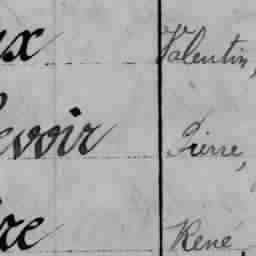 ux Valentin,
evoir Pierre,
re René,